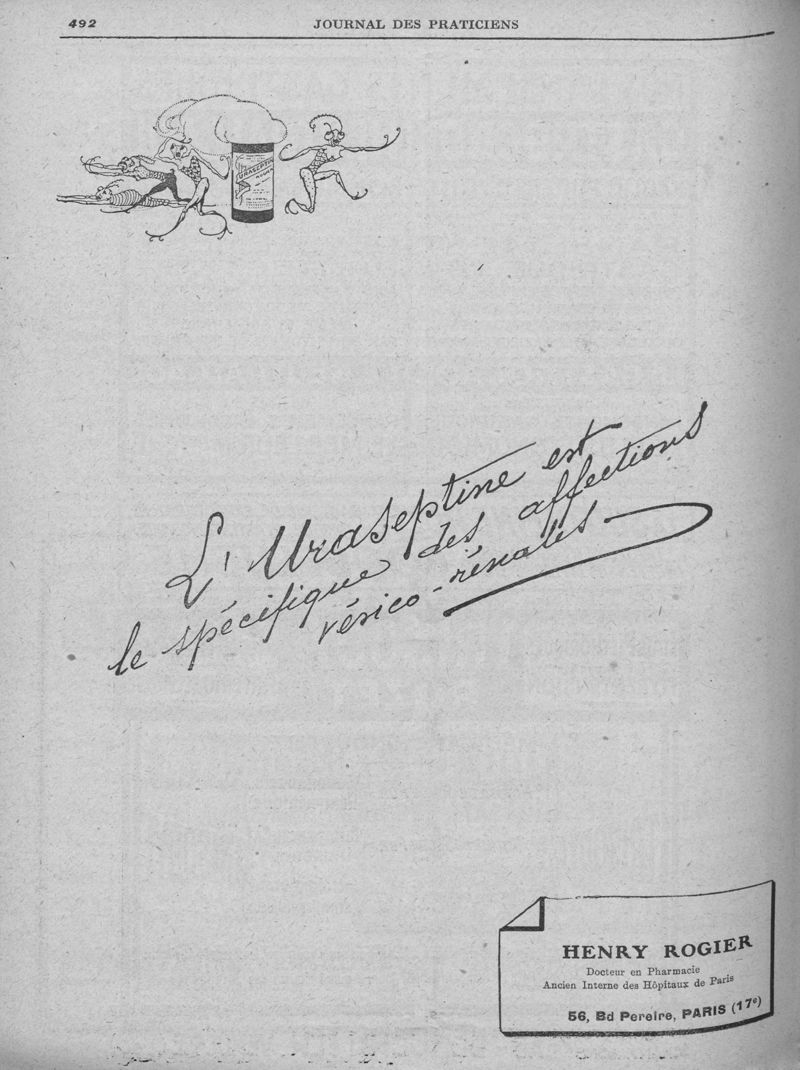 492
JOURNAL DES PRATICIENS
URASEPTINE
ROGIER
L'Uraseptine est
le spécifique des affections
vésico-rénales
HENRY ROGIER
Docteur en Pharmacie
Ancien Interne des Hôpitaux de Paris
56, Bd Pereire, PARIS (17e)